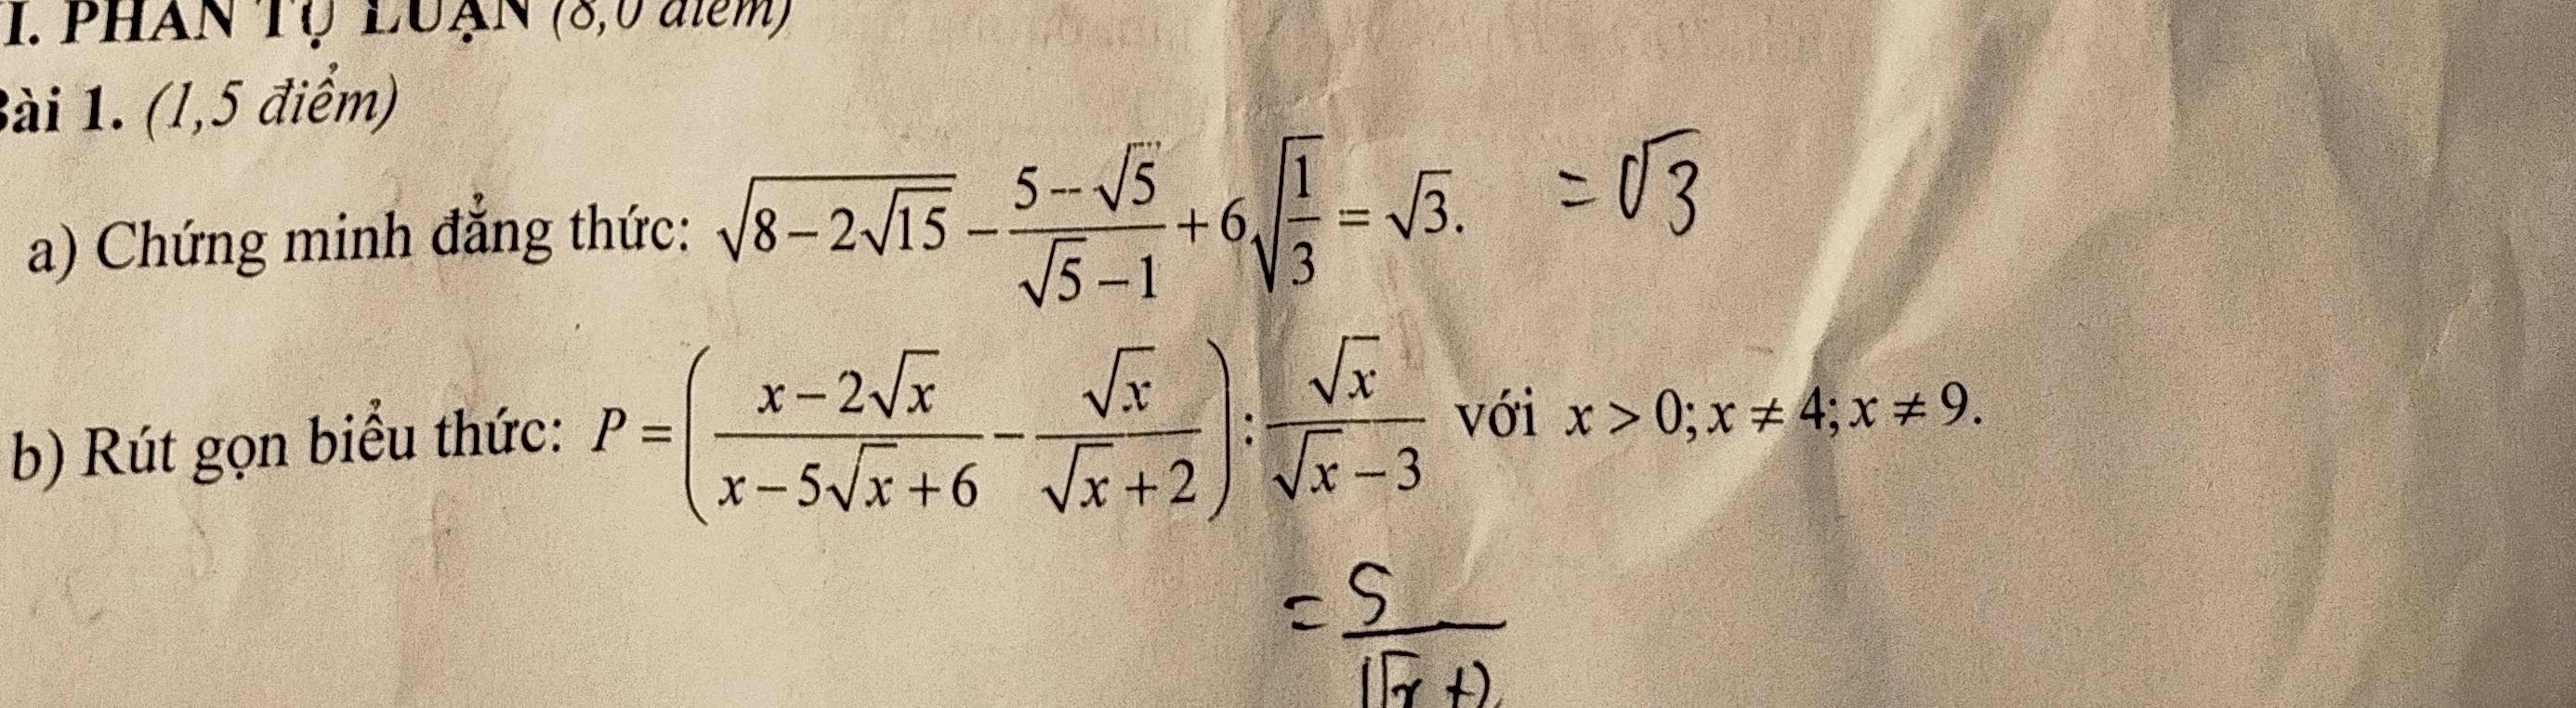 I. PHẦN TỰ LUẬN (8,0 điểm)
Bài 1. (1,5 điểm)
a) Chứng minh đẳng thức: √(8 − 2√15) − (5 − √5)/(√5 − 1) + 6√(1/3) = √3. = √3
b) Rút gọn biểu thức: P = ((x − 2√x)/(x − 5√x + 6) − √x/(√x + 2)) : √x/(√x − 3) với x > 0; x ≠ 4; x ≠ 9.
= 5/(√x +2